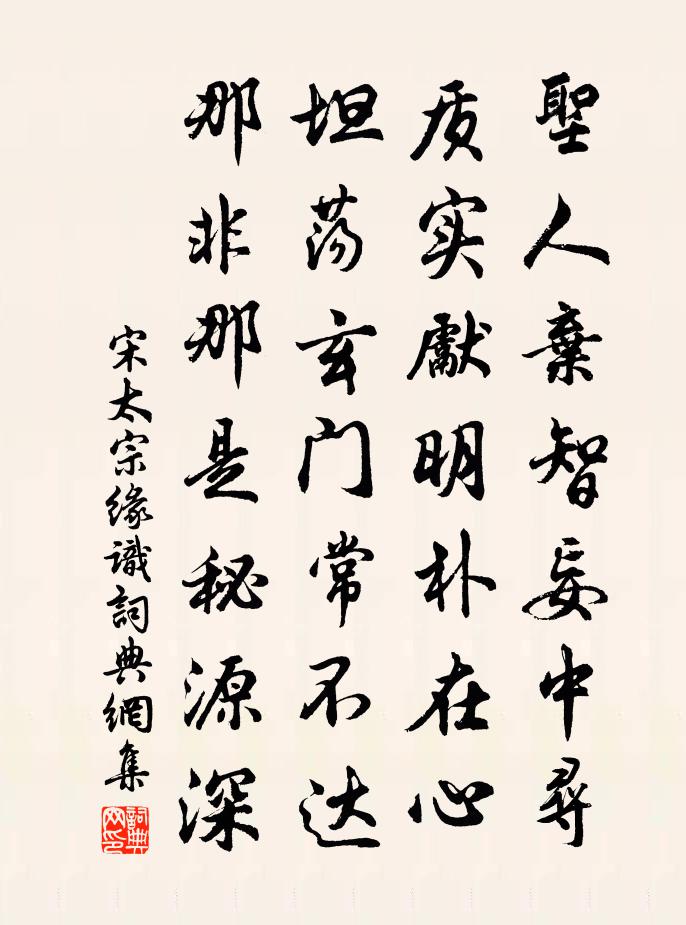 聖人棄智妄中尋
质实獻明朴在心
坦荡玄门常不达
那非那是秘源深
宋太宗缘識詞典網集
詞典网印